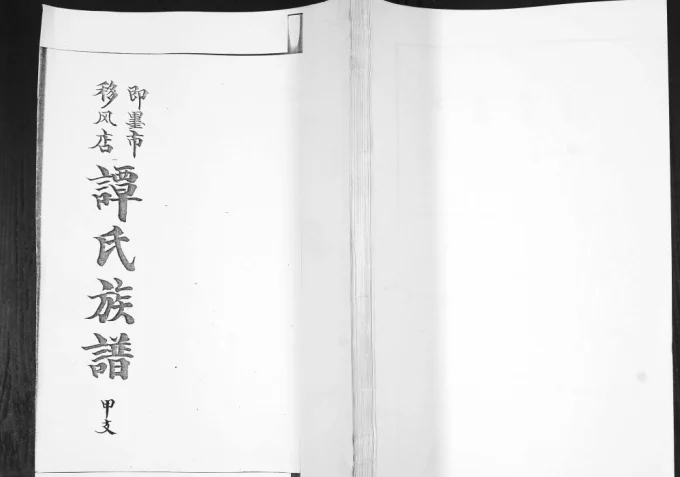 即墨市
移风店
譚氏族譜
甲支